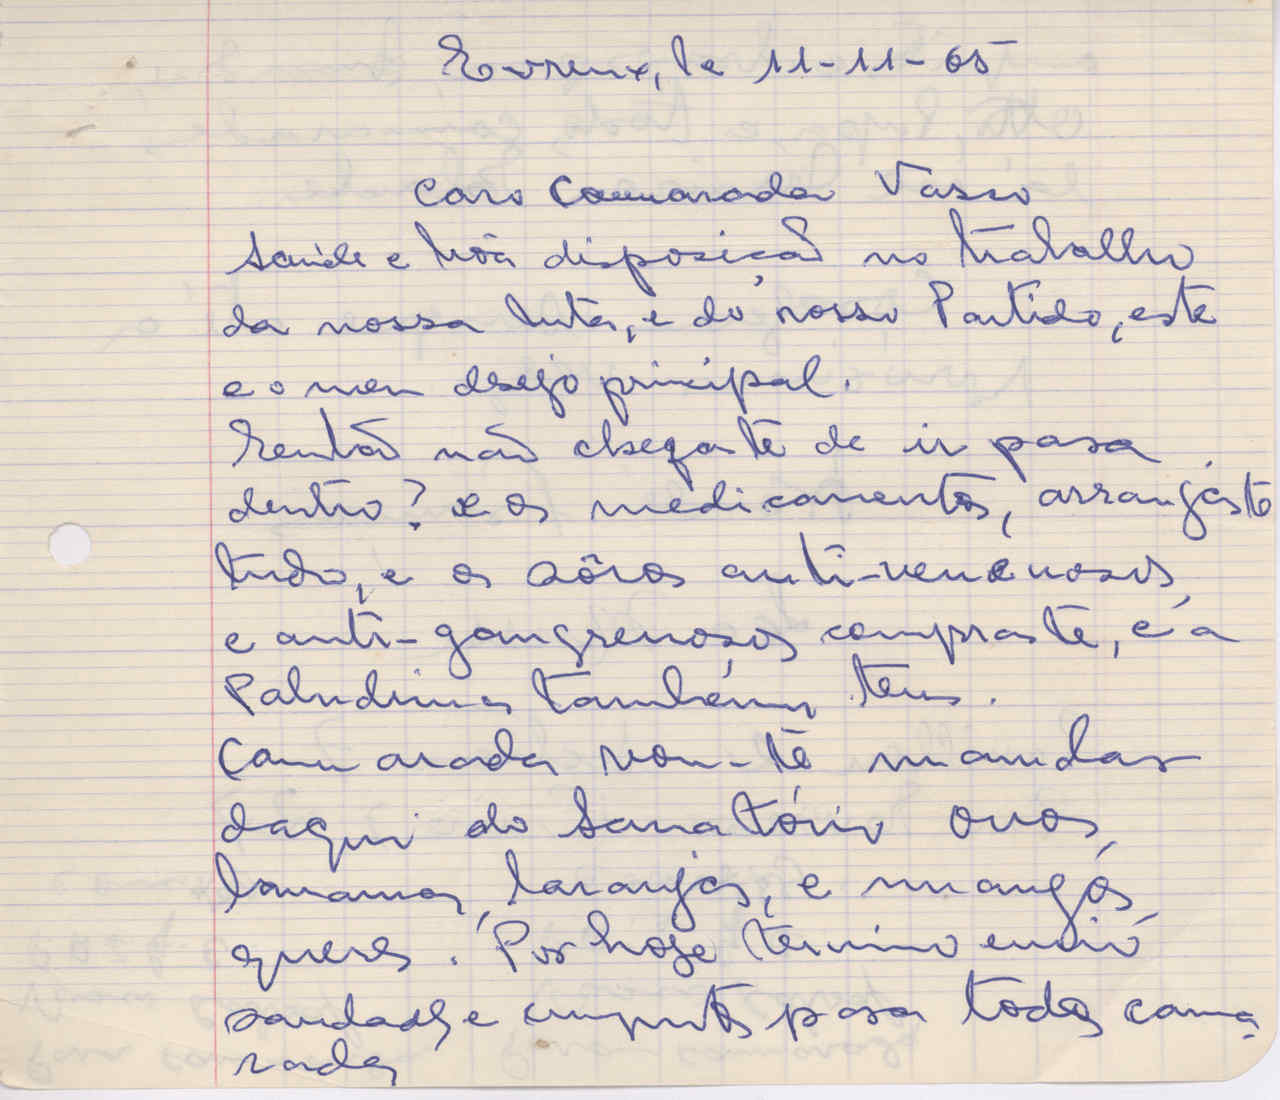 Evreux, le 11-11-65
Caro Camarada Vasco
Saúde e bôa disposição no trabalho
da nossa luta, e do nosso Partido, este
e o meu desejo principal.
Então não chegaste de ir para
dentro? e os medicamentos, arranjaste
tudo, e os sôros anti-venenosos,
e anti-gangrenosos compraste, e a
Paludina também tens.
Camarada vou-te mandar
daqui do Sanatório ovos,
bananas, laranjas, e mangos,
queres. Por hoje termino envio
saudades e cumptos para todos cama
radas